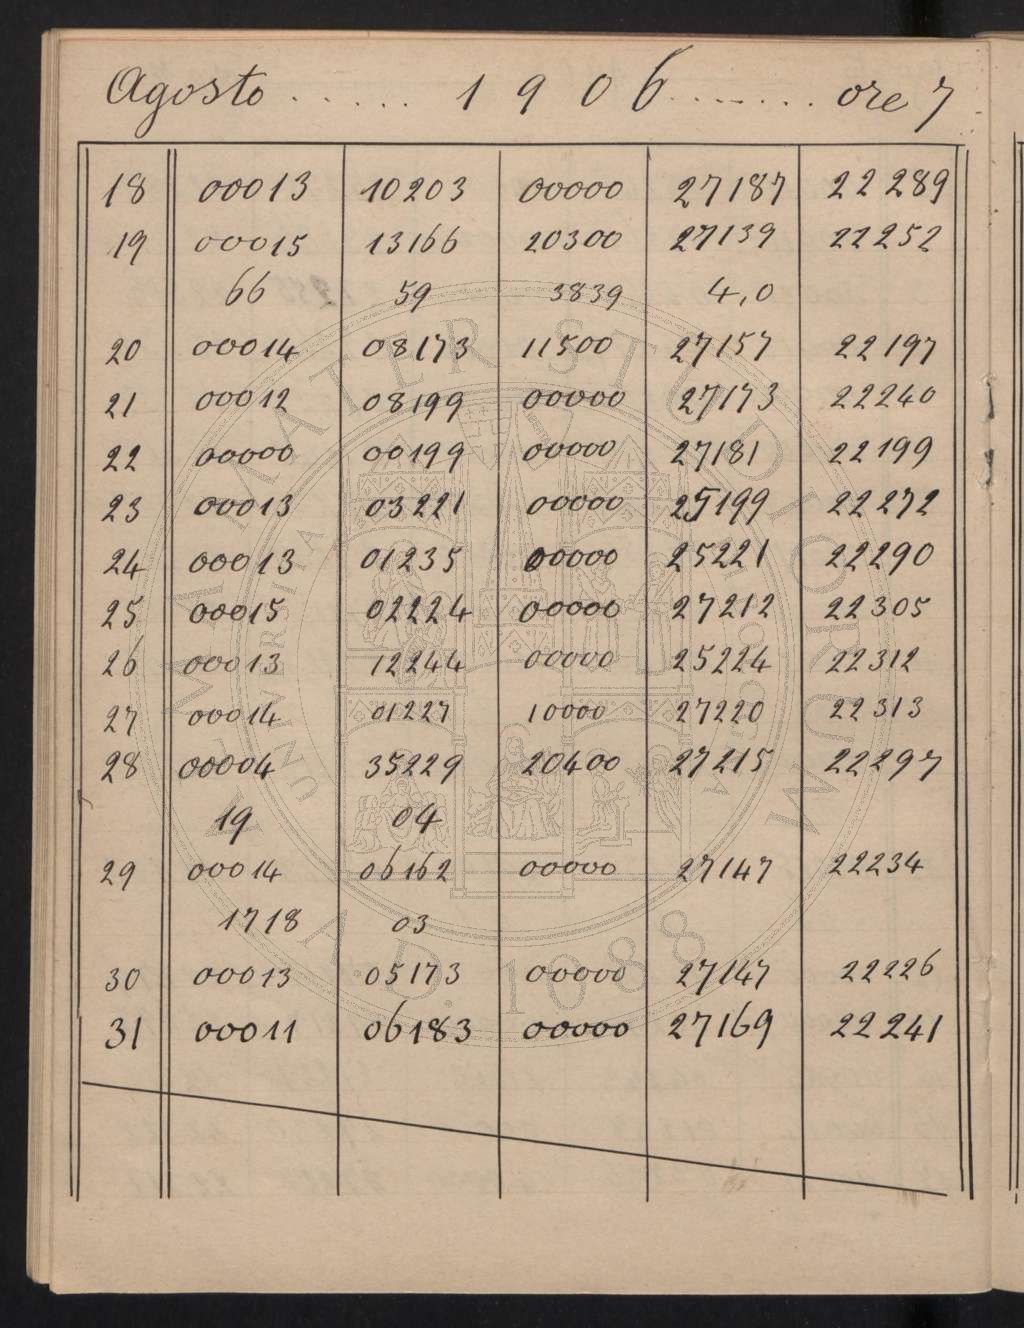 Agosto ...... 1906 ....... ore 7
18 00013 10203 00000 27187 22289
19 00015 13166 20300 27139 22252
66 59 3839 4,0
20 00014 08173 11500 27157 22197
21 00012 08199 00000 27173 22240
22 00000 00199 00000 27181 22199
23 00013 03221 00000 25199 22272
24 00013 01235 00000 25221 22290
25 00015 02224 00000 27212 22305
26 00013 12244 00000 25224 22312
27 00014 01227 10000 27220 22313
28 00004 35229 20400 27215 22297
19 04
29 00014 06162 00000 27147 22234
1718 03
30 00013 05173 00000 27147 22226
31 00011 06183 00000 27169 22241
ALMA MATER STUDIORUM
A.D. 1088